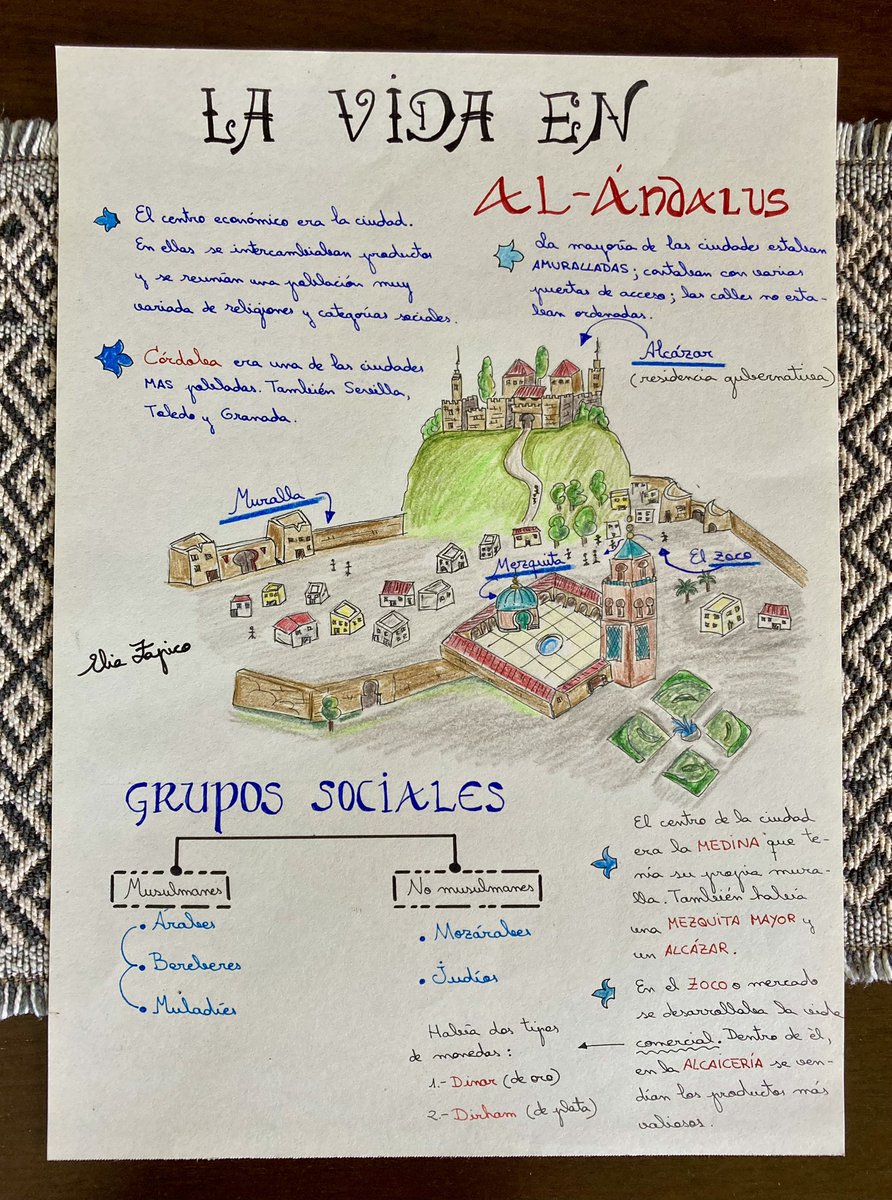 LA VIDA EN
AL-ÁNDALUS
El centro económico era la ciudad.
En ellas se intercambiaban productos
y se reunían una población muy
variada de religiones y categorías sociales.
Córdoba era una de las ciudades
MAS pobladas. También Sevilla,
Toledo y Granada.
La mayoría de las ciudades estaban
AMURALLADAS; contaban con varias
puertas de acceso; las calles no esta-
ban ordenadas.
Alcázar
(residencia gubernativa)
Muralla
Mezquita
El zoco
Elia Tapico
GRUPOS SOCIALES
Musulmanes
Árabes
Bereberes
Muladíes
No musulmanes
Mozárabes
Judíos
El centro de la ciudad
era la MEDINA que te-
nía su propia mura-
lla. También había
una MEZQUITA MAYOR y
un ALCÁZAR.
En el ZOCO o mercado
se desarrollaba la vida
comercial. Dentro de él,
en la ALCAICERÍA se ven-
dían los productos más
valiosos.
Había dos tipos
de monedas:
1.- Dinar (de oro)
2.- Dirham (de plata)